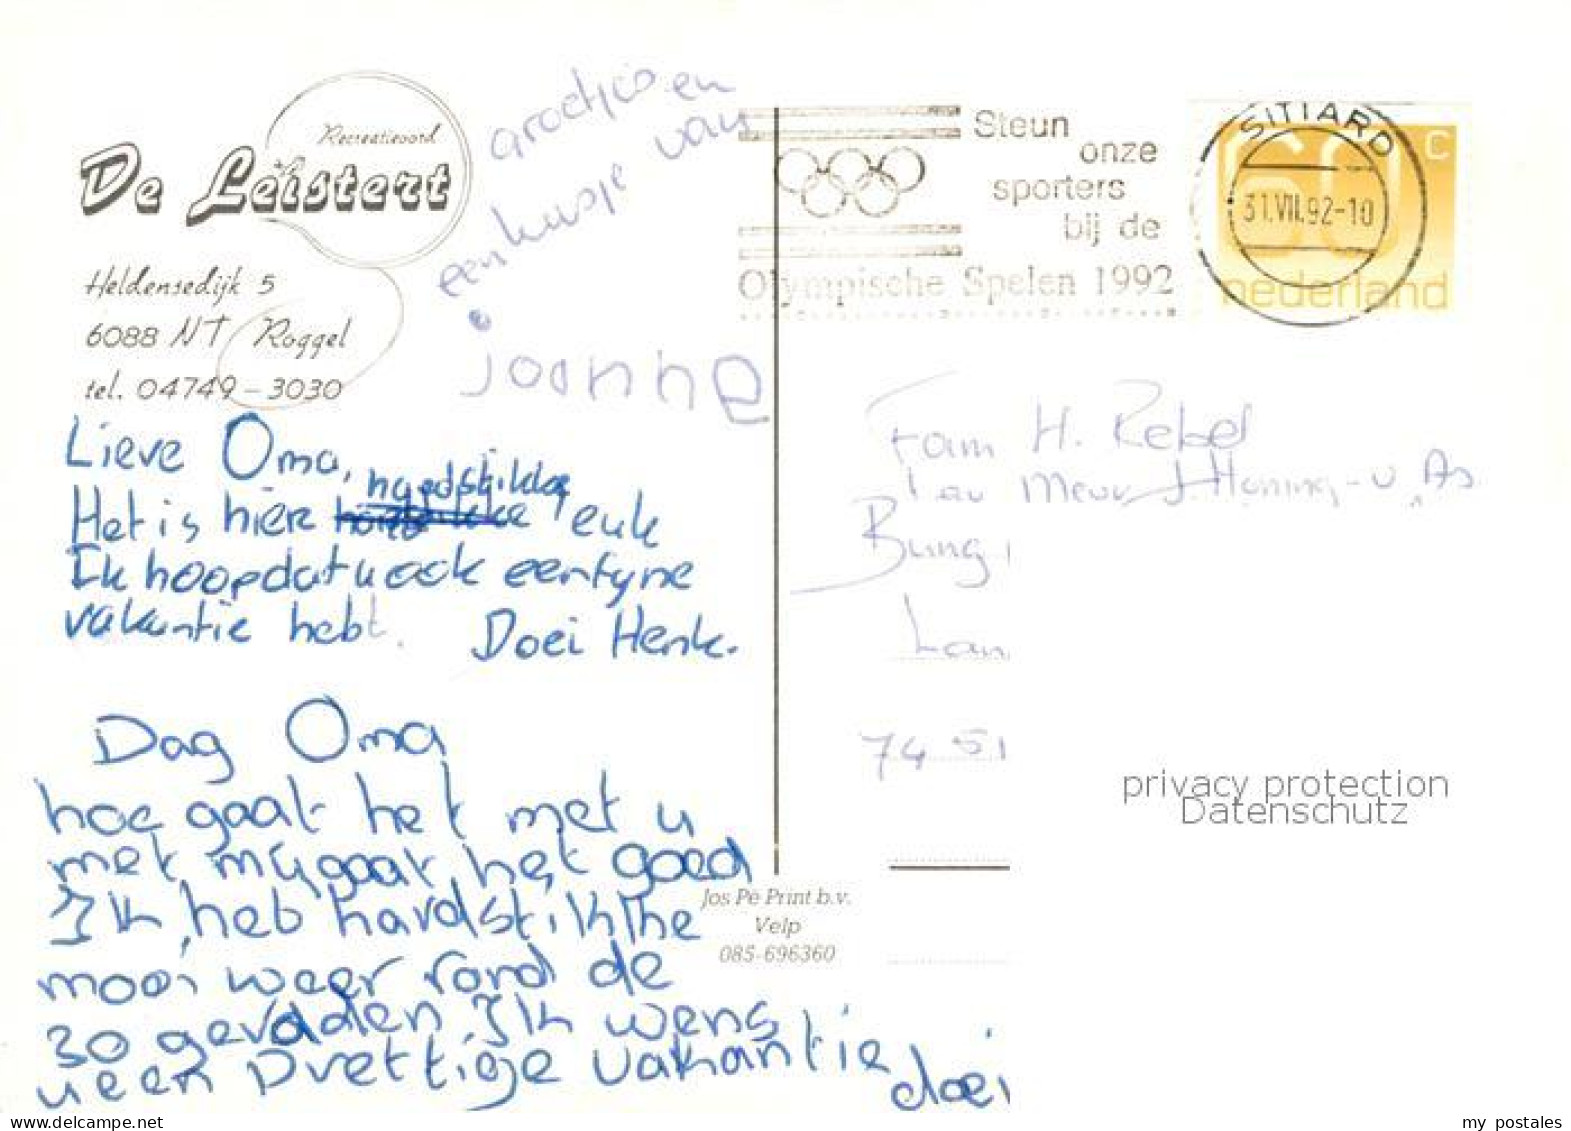 Recreatieoord
De Leistert
Heldensedijk 5
6088 NT Roggel
tel. 04749-3030
Groetjes en
een kusje van
joanne
Lieve Oma,
Het is hier hardstikke leuk
Ik hoop dat u ook een fyne
vakantie hebt. Doei Henk.
Dag Oma
hoe gaat het met u
met mij gaat het goed
Ik heb hardstikke
mooi weer rond de
30 graden Ik wens
u een prettige vakantie doei
Steun
onze
sporters
bij de
Olympische Spelen 1992
SITTARD
31.VII.92-10
60 C
nederland
Fam H. Rebel
Meur J. Honing-v. As
Bung
Lan
74 51
Jos Pé Print b.v.
Velp
085-696360
privacy protection
Datenschutz
www.delcampe.net
my_postales